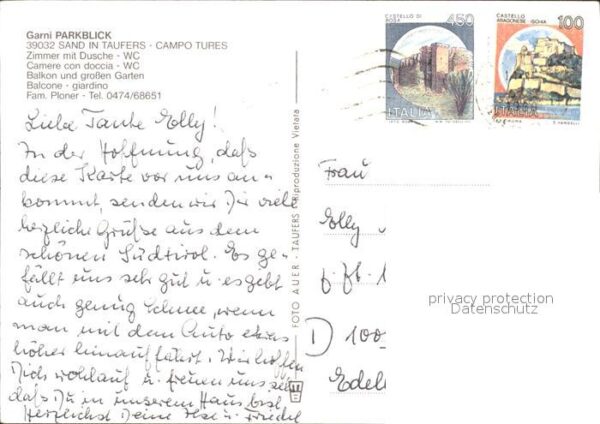 Garni PARKBLICK
39032 SAND IN TAUFERS - CAMPO TURES
Zimmer mit Dusche - WC
Camere con doccia - WC
Balkon und großen Garten
Balcone - giardino
Fam. Ploner - Tel. 0474/68651
Liebe Tante Elly!
In der Hoffnung, daß
diese Karte vor uns an-
kommt, senden wir Dir viele
herzliche Grüße aus dem
schönen Südtirol. Es ge-
fällt uns sehr gut u. es gibt
auch genug Schnee, wenn
man mit dem Auto etwas
höher hinauf fährt. Wir hoffen
Dich wohlauf u. freuen uns,
daß Du in unserem Haus bist
Herzlichst Deine Ilse u. Friedel
FOTO AUER - TAUFERS Riproduzione Vietata
CASTELLO DI
450
ITALIA
CASTELLO
ARAGONESE - ISCHIA
100
ITALIA
Frau
Elly
D 100
Edel
privacy protection
Datenschutz